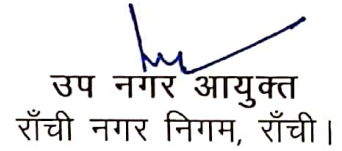 उप नगर आयुक्त
राँची नगर निगम, राँची।